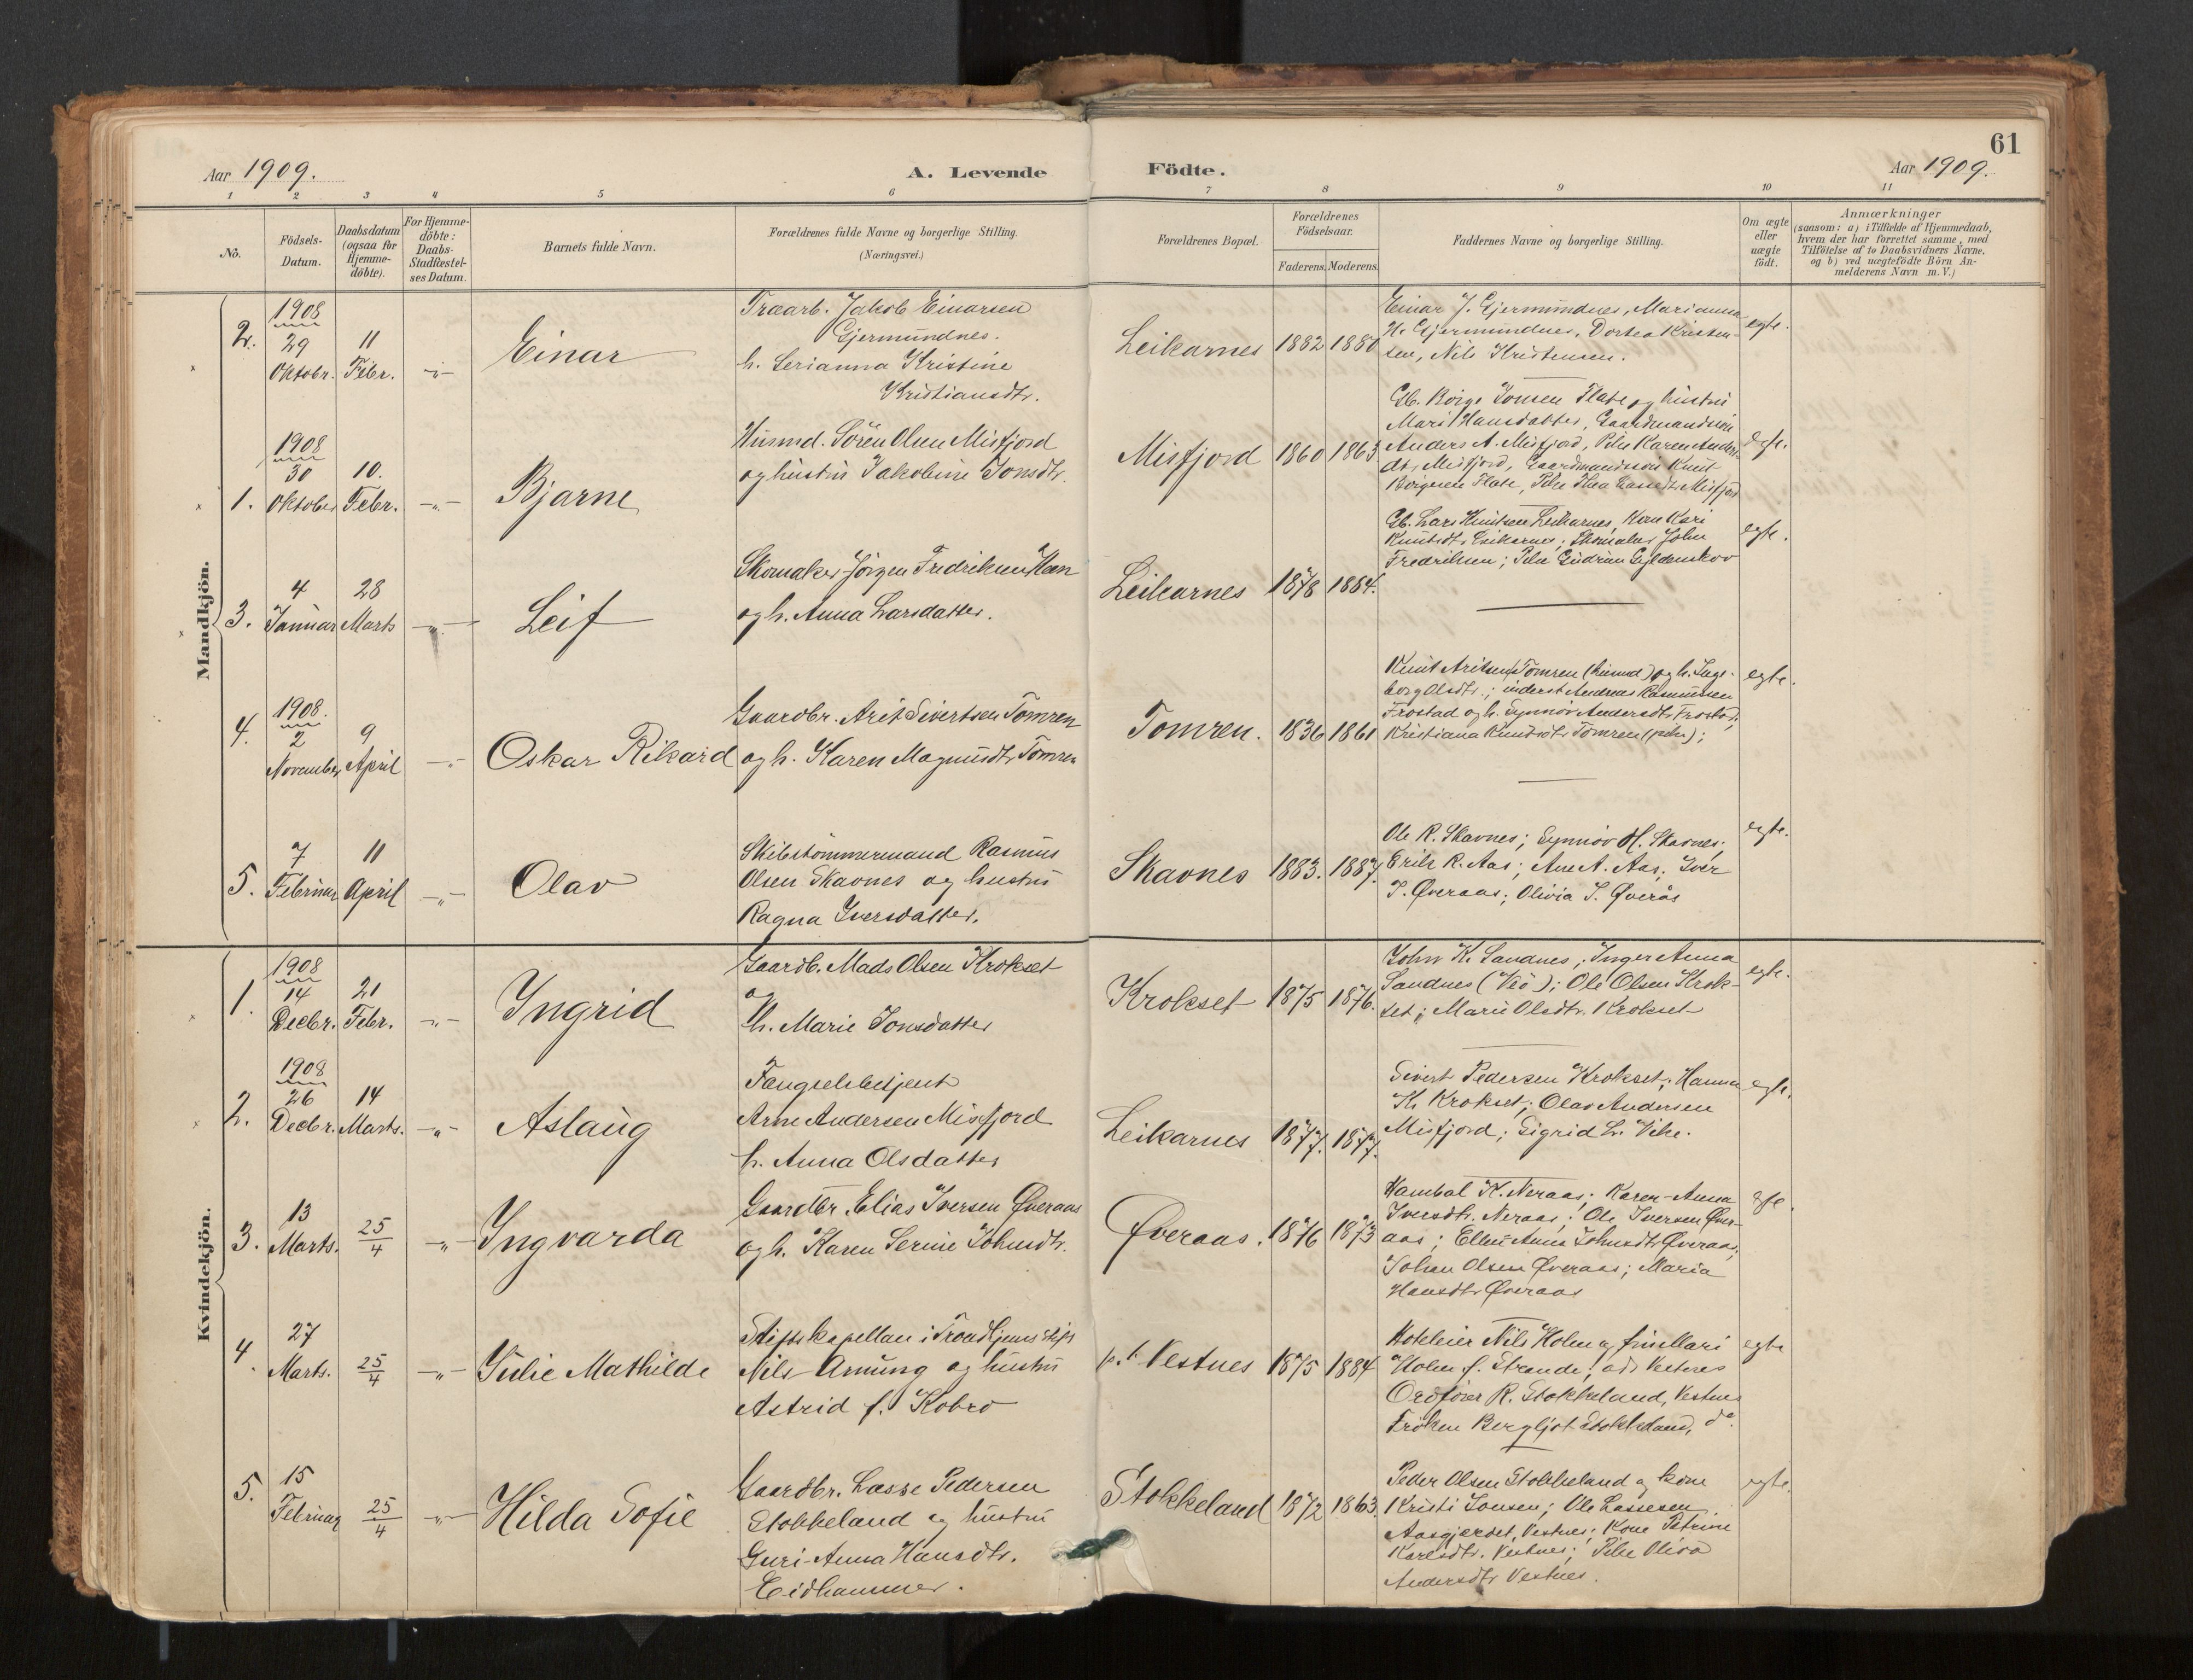 61
Aar 1909.
A. Levende
Födte.
Aar 1909.
1 2 3 4 5 6 7 8 9 10 11
No.
Födsels-
Datum.
Daabsdatum
(ogsaa for
Hjemme-
döbte).
For Hjemme-
döbte:
Daabs-
Stadfæstel-
ses Datum.
Barnets fulde Navn.
Forældrenes fulde Navne og borgerlige Stilling.
(Næringsvei.)
Forældrenes Bopæl.
Forældrenes
Födselsaar.
Faderens. Moderens.
Faddernes Navne og borgerlige Stilling.
Om ægte
eller
uægte
födt.
Anmærkninger
(saasom: a) i Tilfælde af Hjemmedaab,
hvem der har forrettet samme, med
Tilföielse af to Daabsvidners Navne,
og b) ved uægtefödte Börn An-
melderens Navn m. V.)
Mandkjön.
2.
1908
29
Oktobr.
11
Febr.
Einar
Træarb. Jakob Einarsen
Gjermundnes.
h. Serianna Kristine
Kristiansdtr.
Leikarnes
1882 1880
Einar J. Gjermundnes, Marianna
H. Gjermundnes, Dortea Kristen-
sen, Nils Kristensen.
egte.
1.
1908
30
Oktober
10.
Febr.
Bjarne
Husmd. Sören Olsen Misfjord
og hustru Jakobine Jonsdtr.
Misfjord
1860 1863
Gb. Börge Jonsen Flate og hustru
Mari Hansdatter, Gaardmandssön
Anders A. Misfjord, Pike Karen Anders-
dt. Misfjord, Gaardmandssön Knut
Börgesen Flate, Pike Thea Lassedtr. Misfjord
egte.
3.
4
Januar
28
Marts
Leif
Skomaker Jörgen Fredriksen Moen
og h. Anna Larsdatter.
Leikarnes
1878 1884.
Gb. Lars Knutsen Leikarnes, Kone Kari
Knutsdtr. Leikarnes; Skomaker John
Fredriksen; Pike Gudrun Gyldenskov
egte.
4.
1908.
2
November
9
April
Oskar Rikard
Gaardbr. Arit Sivertsen Tomren
og h. Karen Magnusdtr. Tomren
Tomren.
1836 1861
Knut Aritsen Tomren (husmd) og h. Inge-
borg Olsdtr.; inderst Andreas Rasmussen
Frostad og h. Synnöv Andersdtr. Frostad;
Kristiana Knudsdtr. Tomren (pike);
egte.
5.
7
Februar
11
April
Olav
Skibstömmermand Rasmus
Olsen Skavnes og hustru
Ragna Iversdatter.
Skavnes
1883. 1887.
Ole R. Skavnes; Synnöv H. Skavnes;
Erik R. Aas; Ane A. Aas; Iver
I. Øveraas; Olivia I. Øverås
egte.
Kvindekjön.
1.
1908
14
Decbr.
21
Febr.
Yngrid
Gaardb. Mads Olsen Krokset
og
h. Marie Jonsdatter
Krokset
1875 1876.
John K. Sandnes; Inger Anna
Sandnes (Veö); Ole Olsen Krok-
set; Marie Olsdtr. Krokset
egte.
2.
1908
26
Decbr.
14
Marts.
Aslaug
Fængselsbetjent
Arne Andersen Misfjord
h. Anna Olsdatter
Leikarnes
1877. 1877.
Sivert Pedersen Krokset; Hanna
K. Krokset; Olav Andersen
Misfjord; Sigrid L. Vike.
egte.
3.
13
Marts.
25/4
Yngvarda
Gaardbr. Elias Iversen Øveraas
og h. Karen Serine Johnsdtr.
Øveraas.
1876 1873
Hambal K. Neraas; Karen-Anna
Iversdtr. Neraas; Ole Iversen Øver-
aas; Ellen Anna Johnsdtr. Øveraas;
Johan Olsen Øveraas; Maria
Hansdtr. Øveraas
egte.
4.
27
Marts.
25/4
Julie Mathilde
Stiftskapellan i Trondhjems stift
Nils Arnung og hustru
Astrid f. Kobro
p.t. Vestnes
1875 1884
Hoteleier Nils Holen og fru Mari
Holen f. Strande, Vestnes
Ordförer R. Stokkeland, Vestnes
Fröken Bergljot Stokkeland, do.
egte
5.
15
Februar
25/4
Hilda Sofie
Gaardbr. Lasse Pedersen
Stokkeland og hustru
Guri-Anna Hansdtr.
Eidhammer.
Stokkeland
1872 1863.
Peder Olsen Stokkeland og kone
Kristi Jonsen; Ole Lassesen
Aasgjerdet, Vestnes; Kone Petrine
Karlsdtr. Vestnes; Pike Oliva
Andersdtr. Vestnes.
egte.